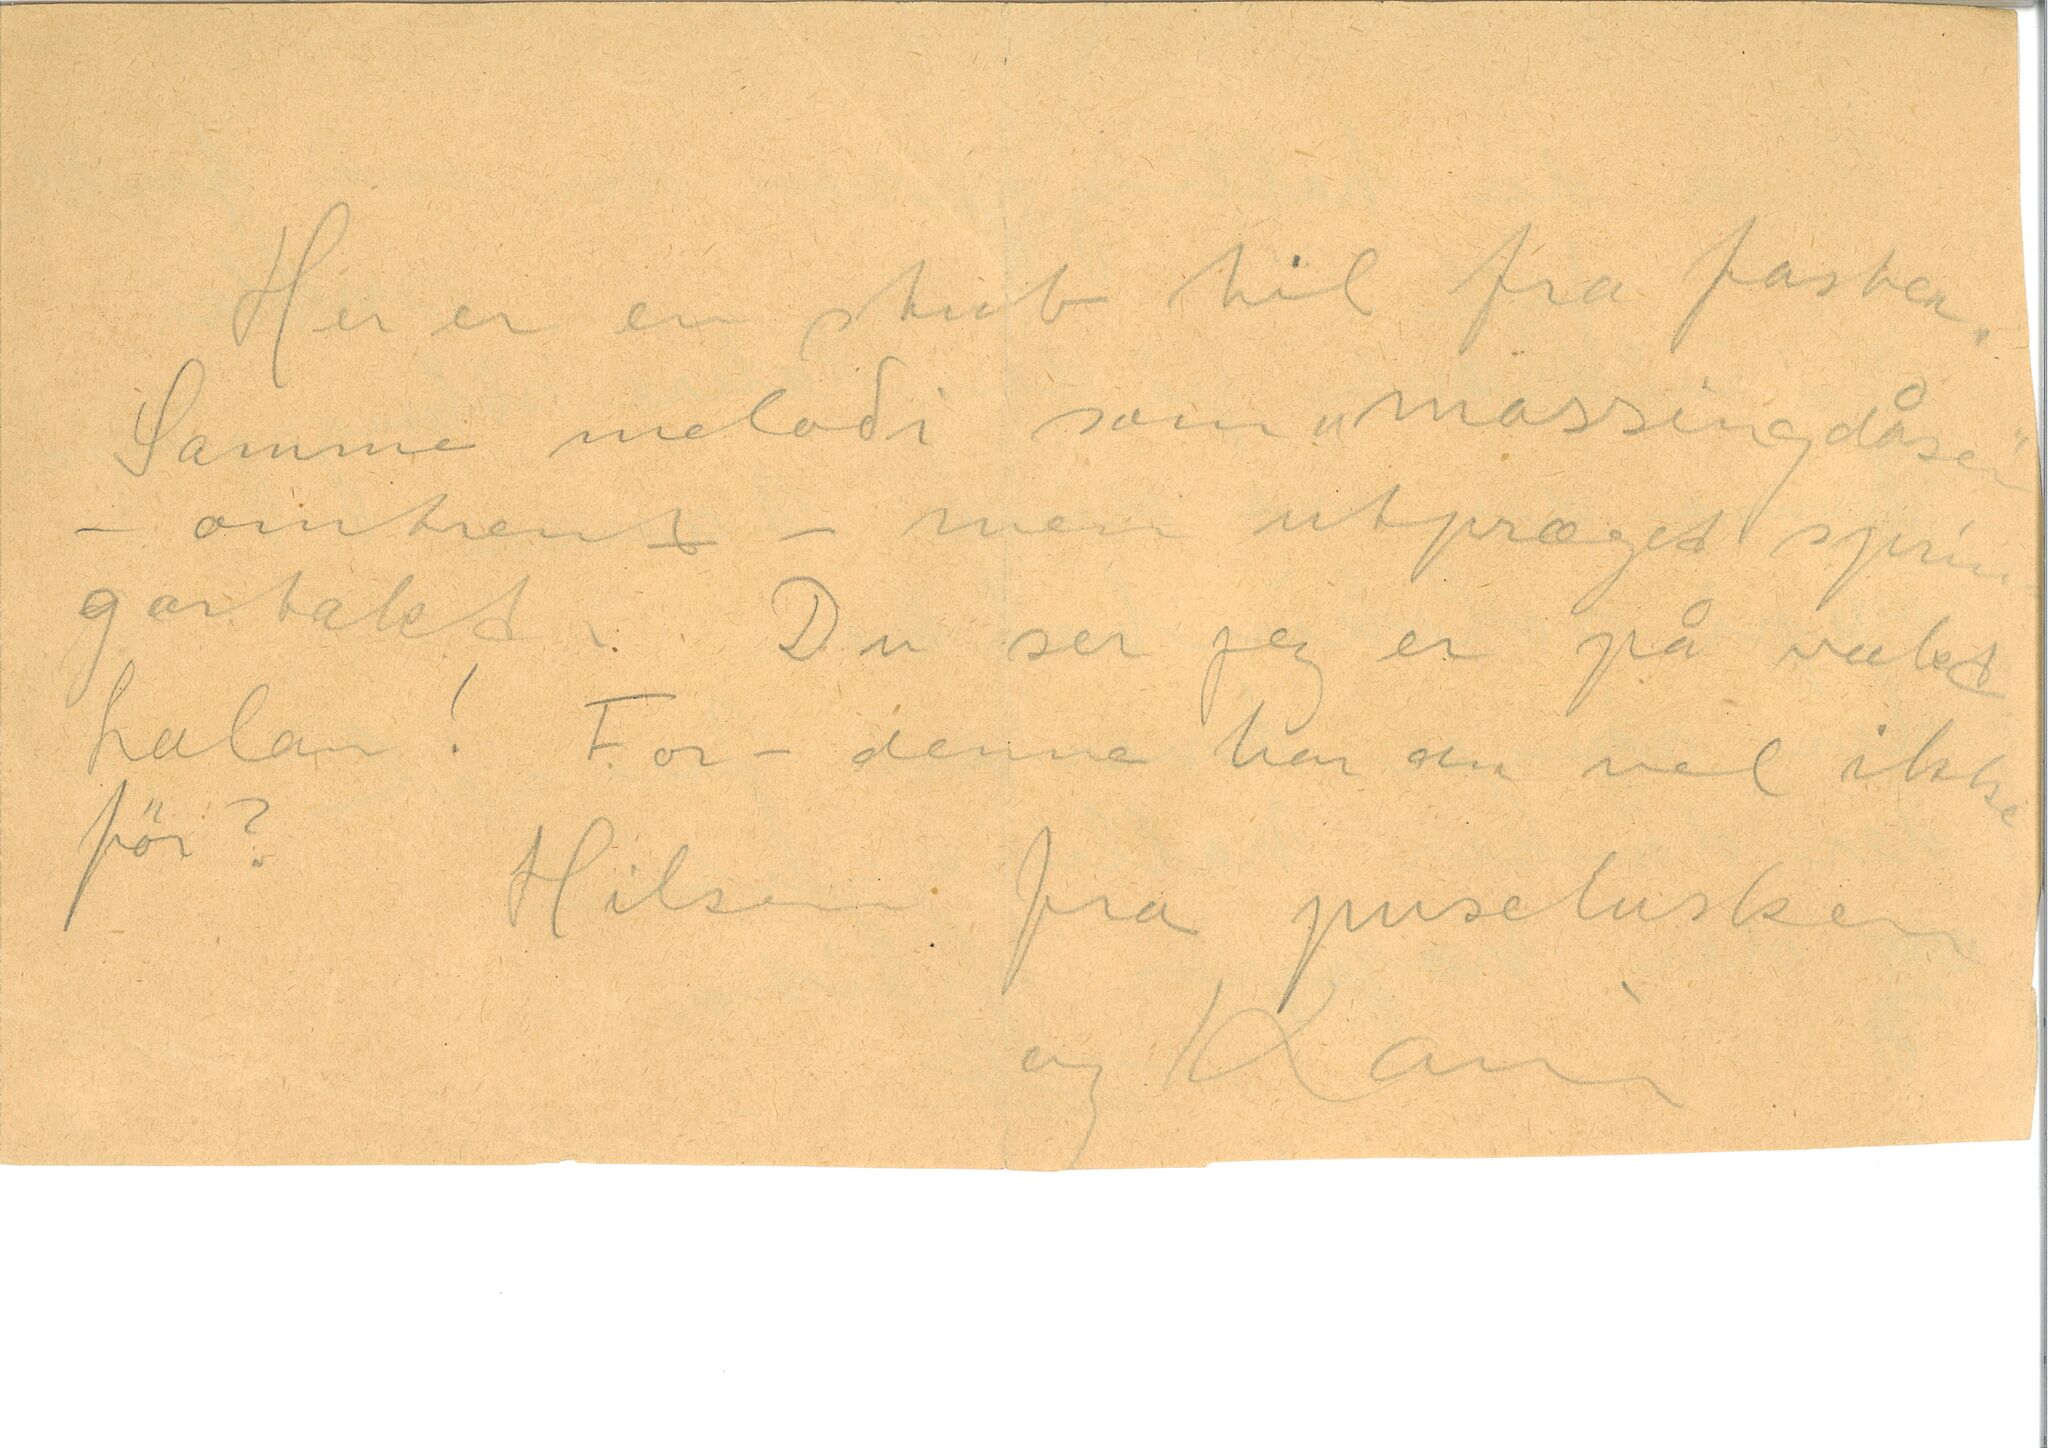 Her er en stub til fra fasten.
Samme melodi som "massingdåsen"
- omtrent - men utpræget sprin-
gartakt. Du ser jeg er på vakt
halan! For - denne har du vel ikke
för?
Hilsen fra puselusken
og Kari